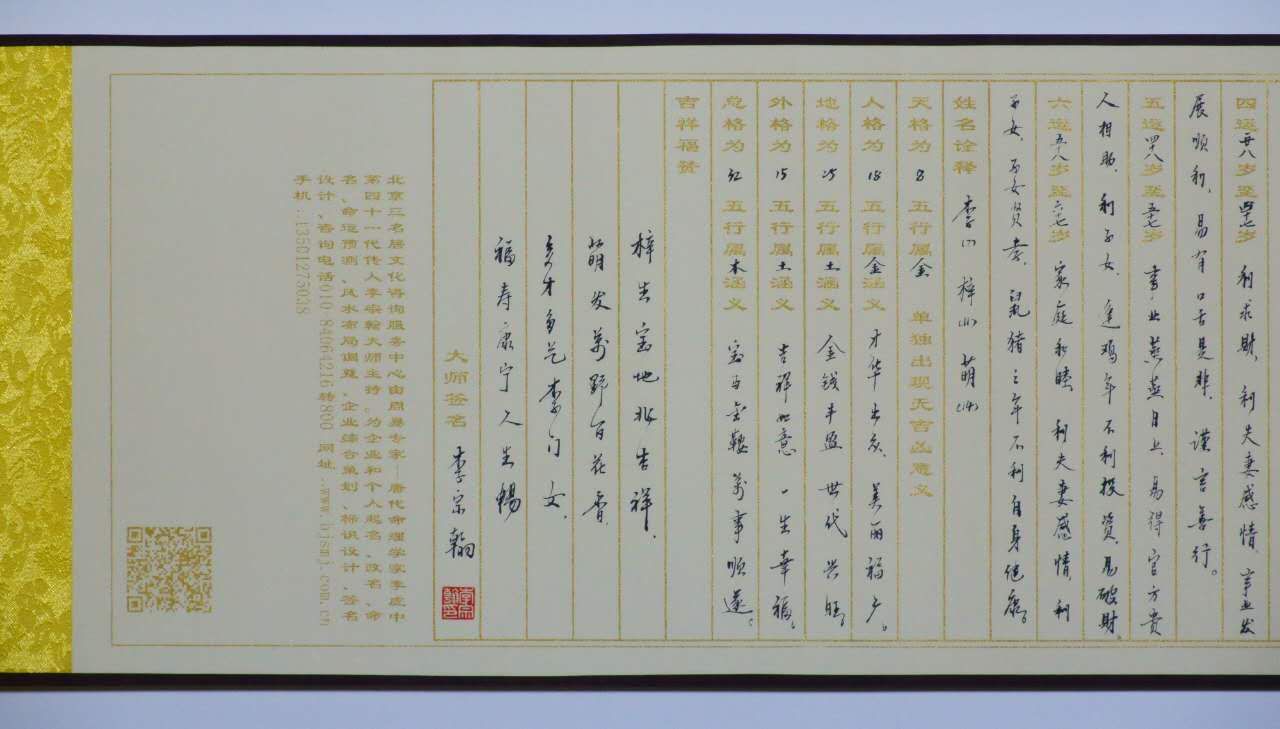 四运廿八岁至四十七岁 利求财，利夫妻感情，事业发
展顺利，易有口舌是非，谨言善行。
五运四十八岁至五十七岁 事业蒸蒸日上，易得官方贵
人相助，利子女，逢鸡年不利投资，易破财。
六运五十八岁至六十七岁 家庭和睦 利夫妻感情，利
子女，子女贤孝，鼠猪之年不利自身健康。
姓名诠释 李(7) 梓(11) 萌(14)
天格为 8 五行属金 单独出现无吉凶意义
人格为 18 五行属金涵义 才华出众，美丽福广。
地格为 25 五行属土涵义 金钱丰盈 世代兴旺。
外格为 15 五行属土涵义 吉祥如意，一生幸福。
总格为 32 五行属木涵义 宝马金鞍 万事顺遂。
吉祥福赞
梓生宝地兆吉祥，
萌发万野百花香，
多才多艺李门女，
福寿康宁人生畅
大师签名 李宗翰
北京三名居文化咨询服务中心由周易专家——唐代命理学家李虚中
第四十一代传人李宗翰大师主持。为企业和个人起名、改名、命
名、命运预测、风水布局调整、企业综合策划、标识设计、签名
设计、咨询电话010-84064216转800 网址：www.bjsmj.com.cn
手机：13501275038